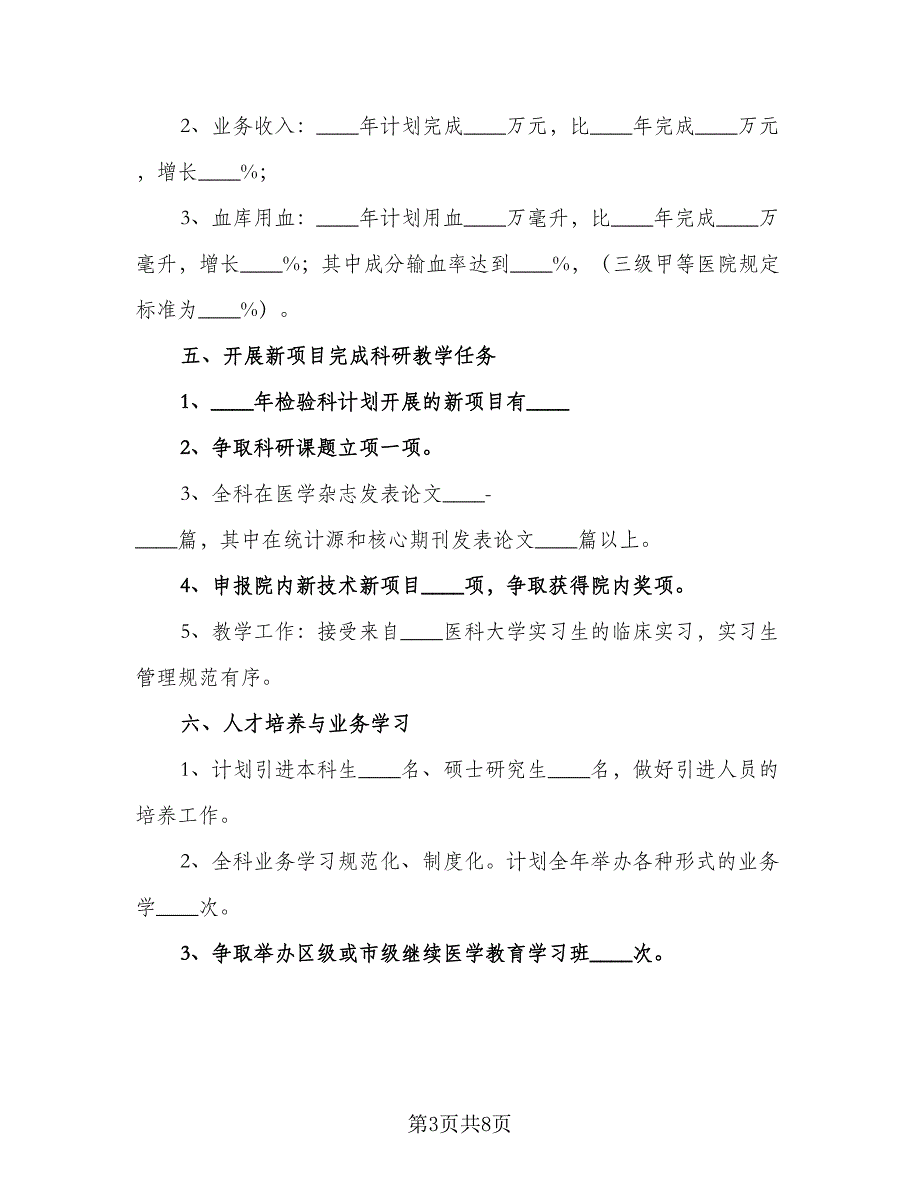 2、业务收入：____年计划完成____万元，比____年完成____万元
，增长____%；
3、血库用血：____年计划用血____万毫升，比____年完成____万
毫升，增长____%；其中成分输血率达到____%，（三级甲等医院规定
标准为____%）。
五、开展新项目完成科研教学任务
1、____年检验科计划开展的新项目有____
2、争取科研课题立项一项。
3、全科在医学杂志发表论文____-
____篇，其中在统计源和核心期刊发表论文____篇以上。
4、申报院内新技术新项目____项，争取获得院内奖项。
5、教学工作：接受来自____医科大学实习生的临床实习，实习生
管理规范有序。
六、人才培养与业务学习
1、计划引进本科生____名、硕士研究生____名，做好引进人员的
培养工作。
2、全科业务学习规范化、制度化。计划全年举办各种形式的业务
学____次。
3、争取举办区级或市级继续医学教育学习班____次。
第3页共8页